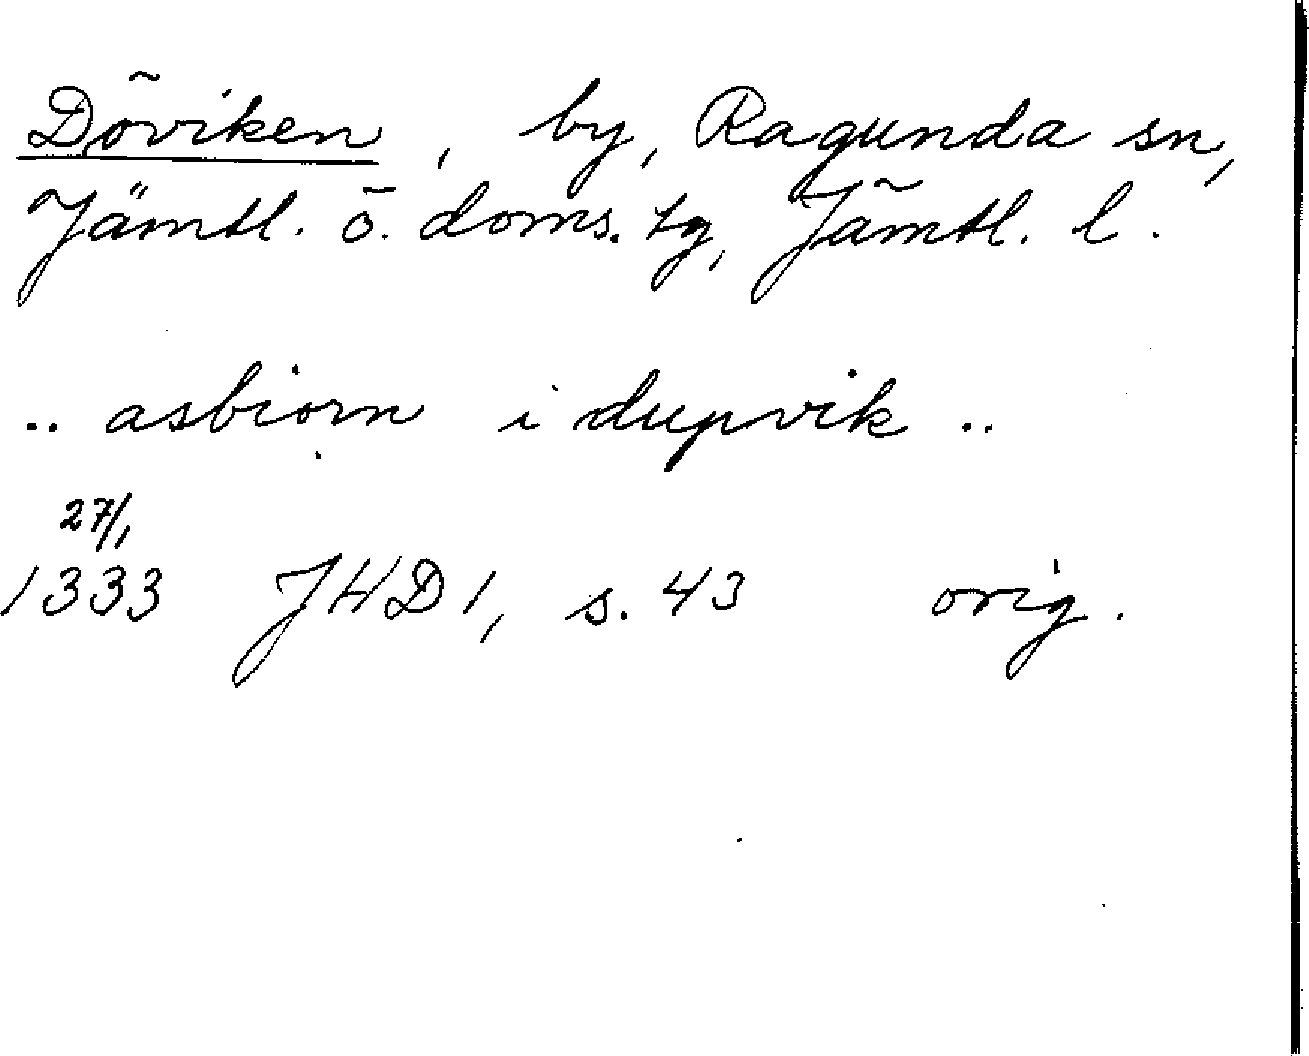 Döviken, by, Ragunda sn,
Jämtl. ö. doms. tg, Jämtl. l.
.. asbiorn i dupvik ..
27/1
1333 JHD 1, s. 43 orig.